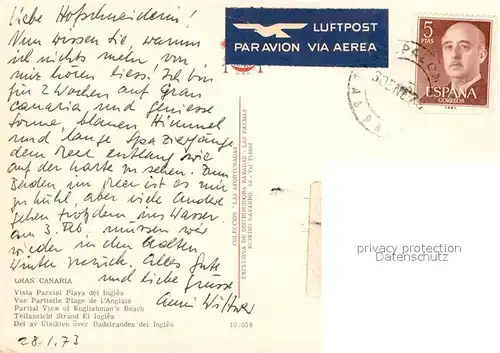 Liebe Hofschneiderin!
Nun wissen Sie, warum
ich nichts mehr von
mir hören liess. Ich bin
für 2 Wochen auf Gran
Canaria und geniesse
Sonne, blauen Himmel
und lange Spaziergänge
dem Meer entlang wie
auf der Karte zu sehen. Zum
Baden im Meer ist es mir
zu kühl, aber viele Andere
gehen trotzdem ins Wasser.
Am 3. Feb. müssen wir
wieder in den kalten
Winter zurück. Alles Gute
und liebe Grüsse
LUFTPOST
PAR AVION VIA AEREA
5
PTAS
ESPAÑA
CORREOS
COLECCION "LAS AFORTUNADAS"
EXCLUSIVA DE DISTRIBUIDORA - LAS PALMAS
GRAN CANARIA
Vista Parcial Playa del Inglés
Vue Partielle Plage de l'Anglais
Partial View of Englishman's Beach
Teilansicht Strand El Inglés
Del av Utsikten över Badstranden del Inglés
10.058
28.1.73
privacy protection
watermark